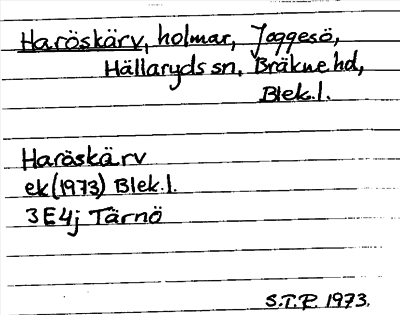 Haröskärv, holmar, Joggesö,
Hällaryds sn, Bräkne hd,
Blek.l.
Haröskärv
ek (1973) Blek.l.
3E4j Tärnö
S.T.R. 1973.